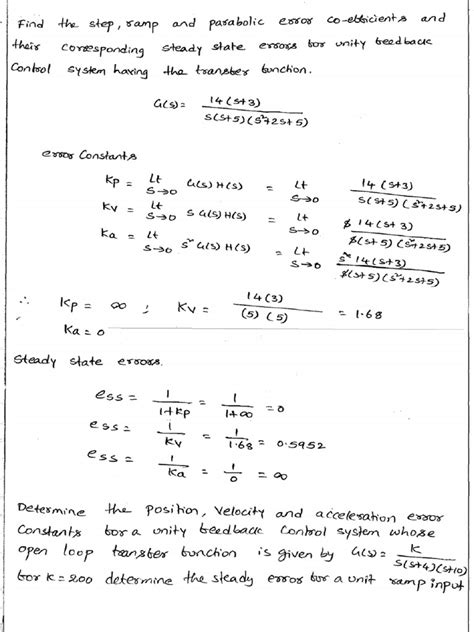 Find the step, ramp and parabolic error co-efficients and
their corresponding steady state errors for unity feedback
Control system having the transfer function.
G(s) = 14(s+3) / s(s+5)(s²+2s+5)
error Constants
Kp = Lt s→0 G(s)H(s) = Lt s→0 14(s+3) / s(s+5)(s²+2s+5)
Kv = Lt s→0 s G(s)H(s) = Lt s→0 s 14(s+3) / s(s+5)(s²+2s+5)
Ka = Lt s→0 s² G(s)H(s) = Lt s→0 s² 14(s+3) / s(s+5)(s²+2s+5)
∴ Kp = ∞ ; Kv = 14(3) / (5)(5) = 1.68
Ka = 0
Steady state errors.
ess = 1/1+Kp = 1/1+∞ = 0
ess = 1/Kv = 1/1.68 = 0.5952
ess = 1/Ka = 1/0 = ∞
Determine the Position, Velocity and acceleration error
Constants for a unity feedback Control system whose
open loop transfer function is given by G(s) = K / s(s+4)(s+10)
for K = 200 determine the steady error for a unit ramp input